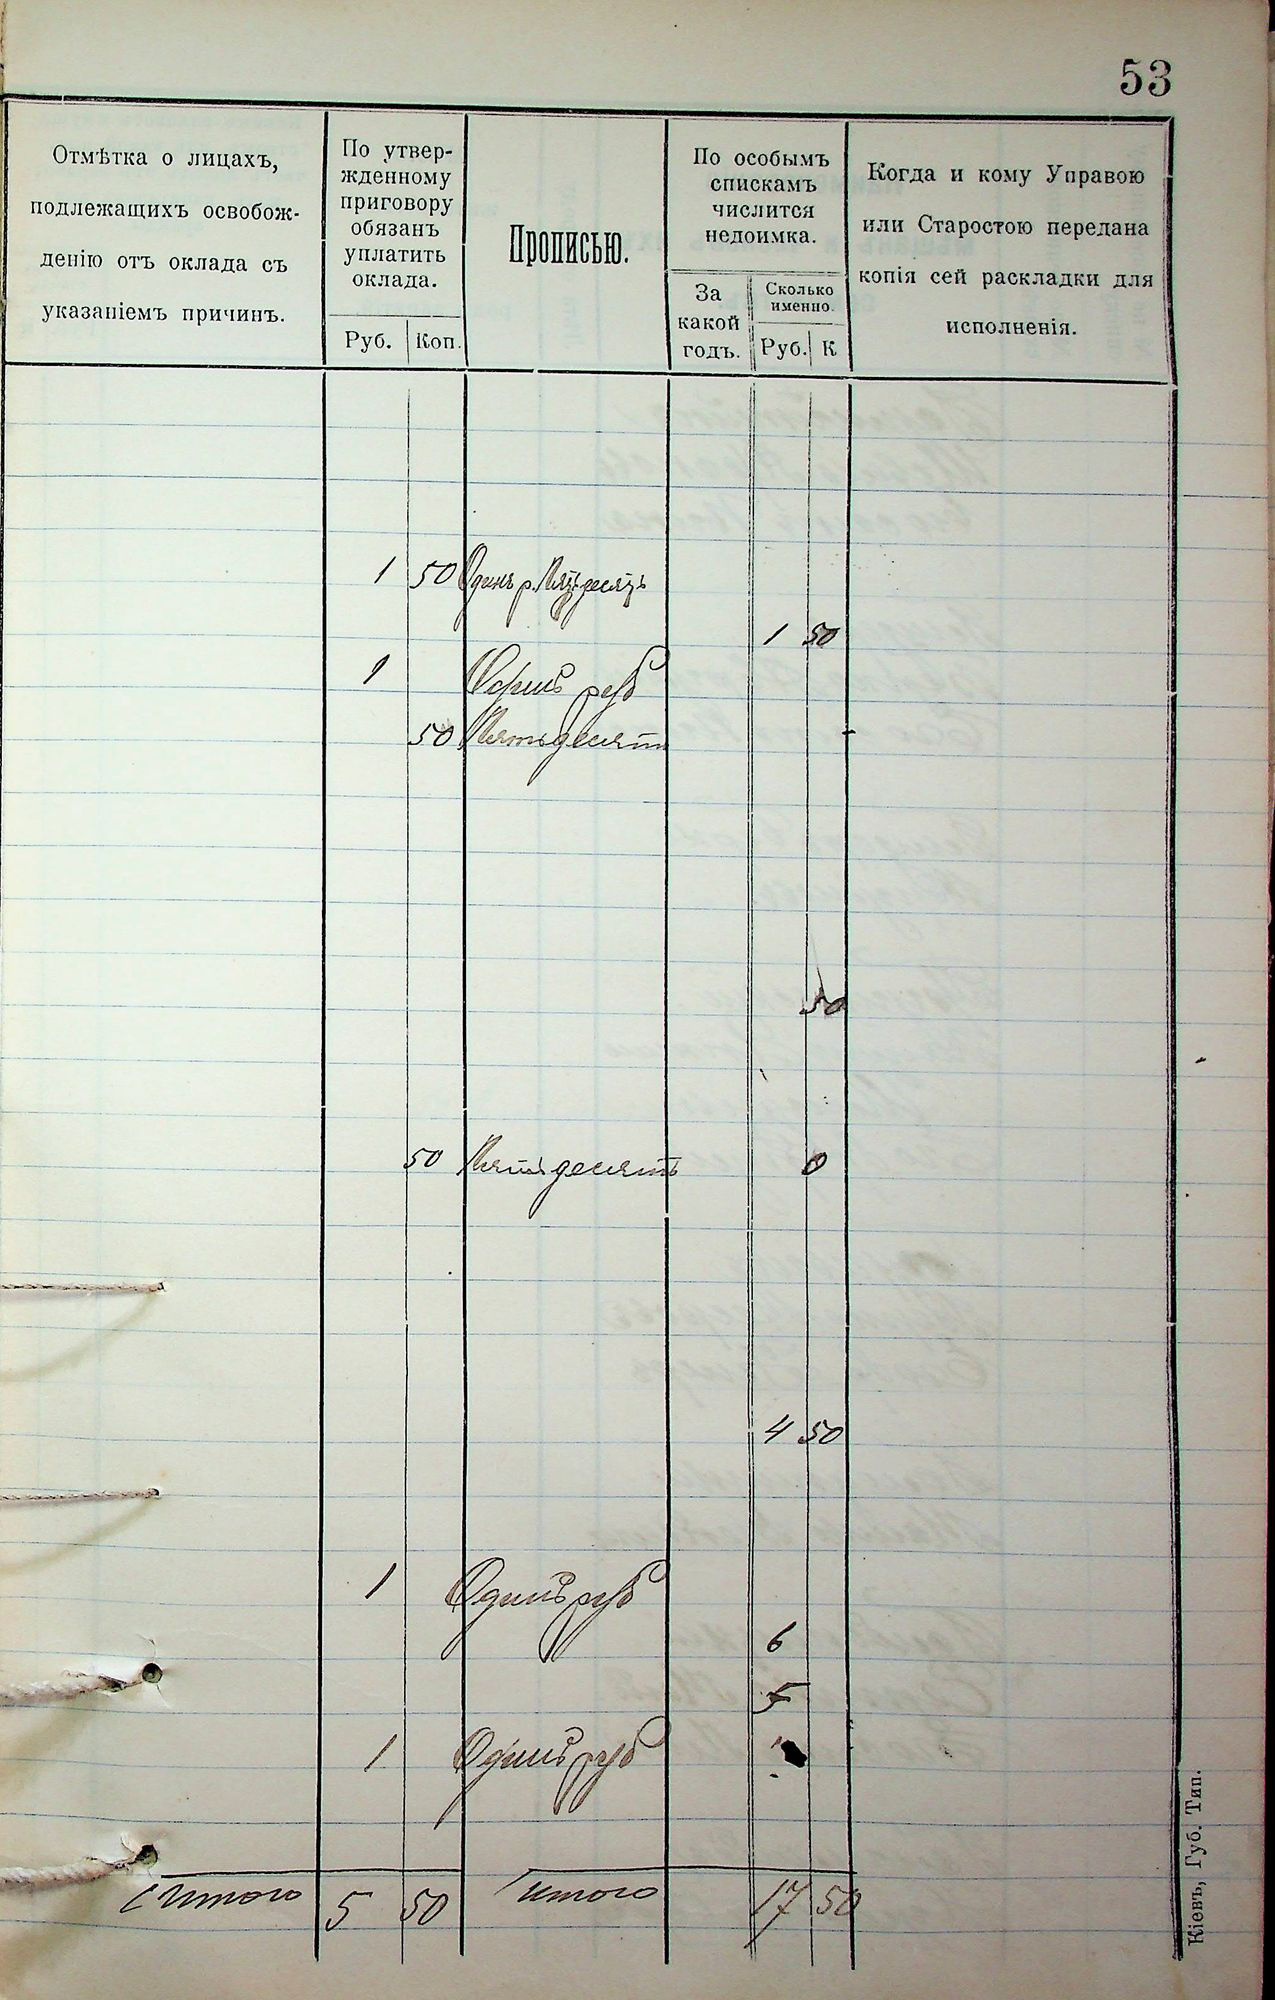 53
Отмѣтка о лицахъ,
подлежащихъ освобож-
денію отъ оклада съ
указаніемъ причинъ.
По утвер-
жденному
приговору
обязанъ
уплатить
оклада.
Руб. Коп.
Прописью.
По особымъ
спискамъ
числится
недоимка.
За
какой
годъ.
Сколько
именно.
Руб. К
Когда и кому Управою
или Старостою передана
копія сей раскладки для
исполненія.
1 50 Одинъ р. Пятьдесятъ
1 50
1 Одинъ руб
50 Пятьдесятъ
50
50 Пятьдесятъ 0
4 50
1 Одинъ руб
6
5
1 Одинъ руб
Итого 5 50 Итого 17 50
Кіевъ, Губ. Тип.